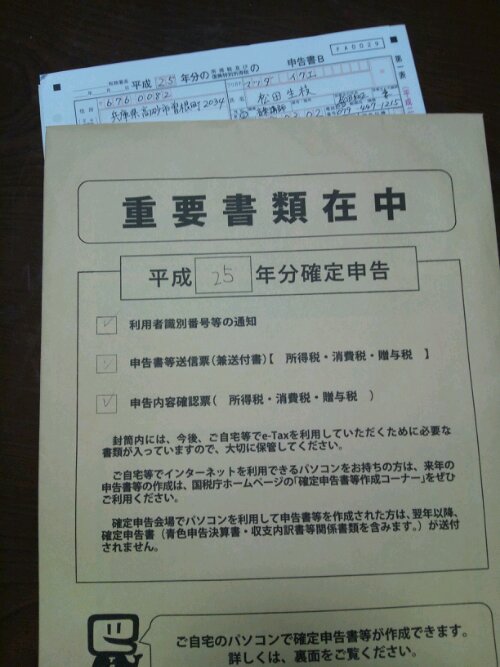 平成 25 年分の所得税及び復興特別所得税の 申告書B
FA0029
第一表
6760082
兵庫県高砂市曽根町2034
マツダ イクエ
松田生枝
重要書類在中
平成 25 年分確定申告
利用者識別番号等の通知
申告書等送信票(兼送付書)【 所得税・消費税・贈与税 】
申告内容確認票( 所得税・消費税・贈与税 )
封筒内には、今後、ご自宅等でe-Taxを利用していただくために必要な
書類が入っていますので、大切に保管してください。
ご自宅等でインターネットを利用できるパソコンをお持ちの方は、来年の
申告書等の作成は、国税庁ホームページの「確定申告書等作成コーナー」をぜひ
ご利用ください。
確定申告会場でパソコンを利用して申告書等を作成された方は、翌年以降、
確定申告書(青色申告決算書・収支内訳書等関係書類を含みます。)が送付
されません。
ご自宅のパソコンで確定申告書等が作成できます。
詳しくは、裏面をご覧ください。